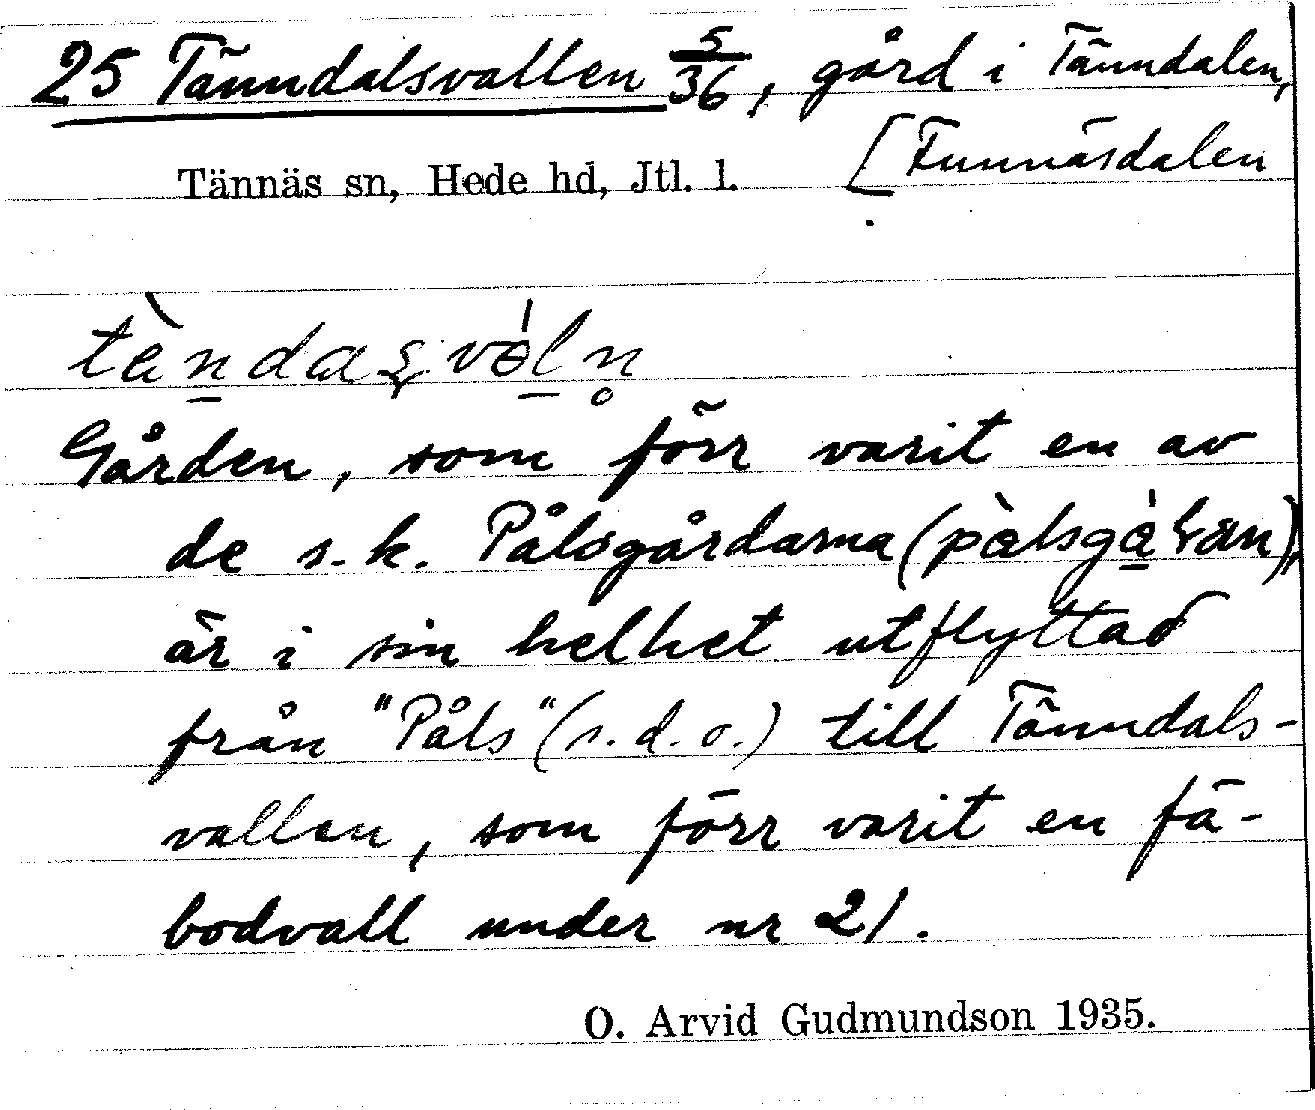 25 Tänndalsvallen 5/36, gård i Tänndalen,
Tännäs sn, Hede hd, Jtl. l. [Funnäsdalen
Gården, som förr varit en av
de s.k. Pålsgårdarna
är i sin helhet utflyttad
från "Påls" (s.d.o.) till Tänndals-
vallen, som förr varit en fä-
bodvall under nr 21.
O. Arvid Gudmundson 1935.